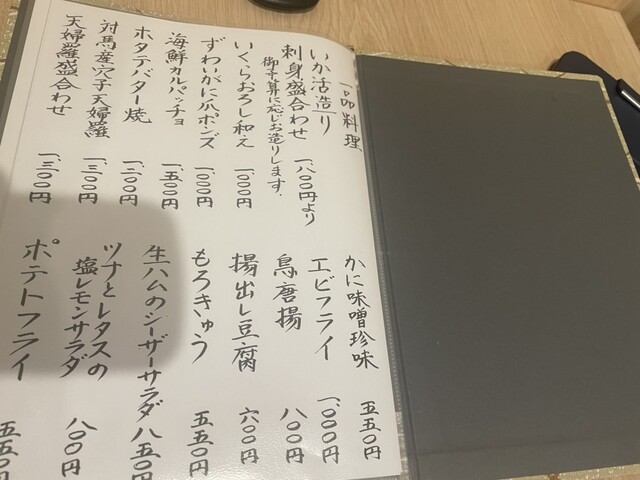 一品料理
いか活造り
刺身盛合わせ 一、八〇〇円より
御予算に応じお造りします。
いくらおろし和え 一、〇〇〇円
ずわいがに爪ポンズ 一、〇〇〇円
海鮮カルパッチョ 一、五〇〇円
ホタテバター焼 一、二〇〇円
対馬産穴子天婦羅 一、三〇〇円
天婦羅盛合わせ 一、三〇〇円
かに味噌珍味 五五〇円
エビフライ 一、〇〇〇円
鳥唐揚 八〇〇円
揚出し豆腐 六〇〇円
もろきゅう 五五〇円
生ハムのシーザーサラダ 八五〇円
ツナとレタスの
塩レモンサラダ 八〇〇円
ポテトフライ 五五〇円